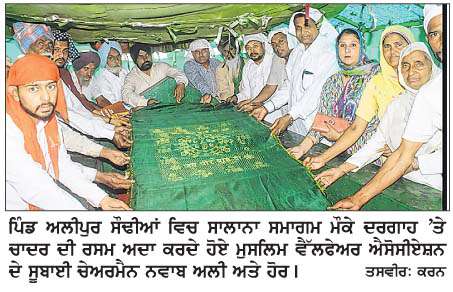 ਪਿੰਡ ਅਲੀਪੁਰ ਸੌਢੀਆਂ ਵਿਚ ਸਾਲਾਨਾ ਸਮਾਗਮ ਮੌਕੇ ਦਰਗਾਹ ’ਤੇ
ਚਾਦਰ ਦੀ ਰਸਮ ਅਦਾ ਕਰਦੇ ਹੋਏ ਮੁਸਲਿਮ ਵੈੱਲਫੇਅਰ ਐਸੋਸੀਏਸ਼ਨ
ਦੇ ਸੂਬਾਈ ਚੇਅਰਮੈਨ ਨਵਾਬ ਅਲੀ ਅਤੇ ਹੋਰ। ਤਸਵੀਰ: ਕਰਨ